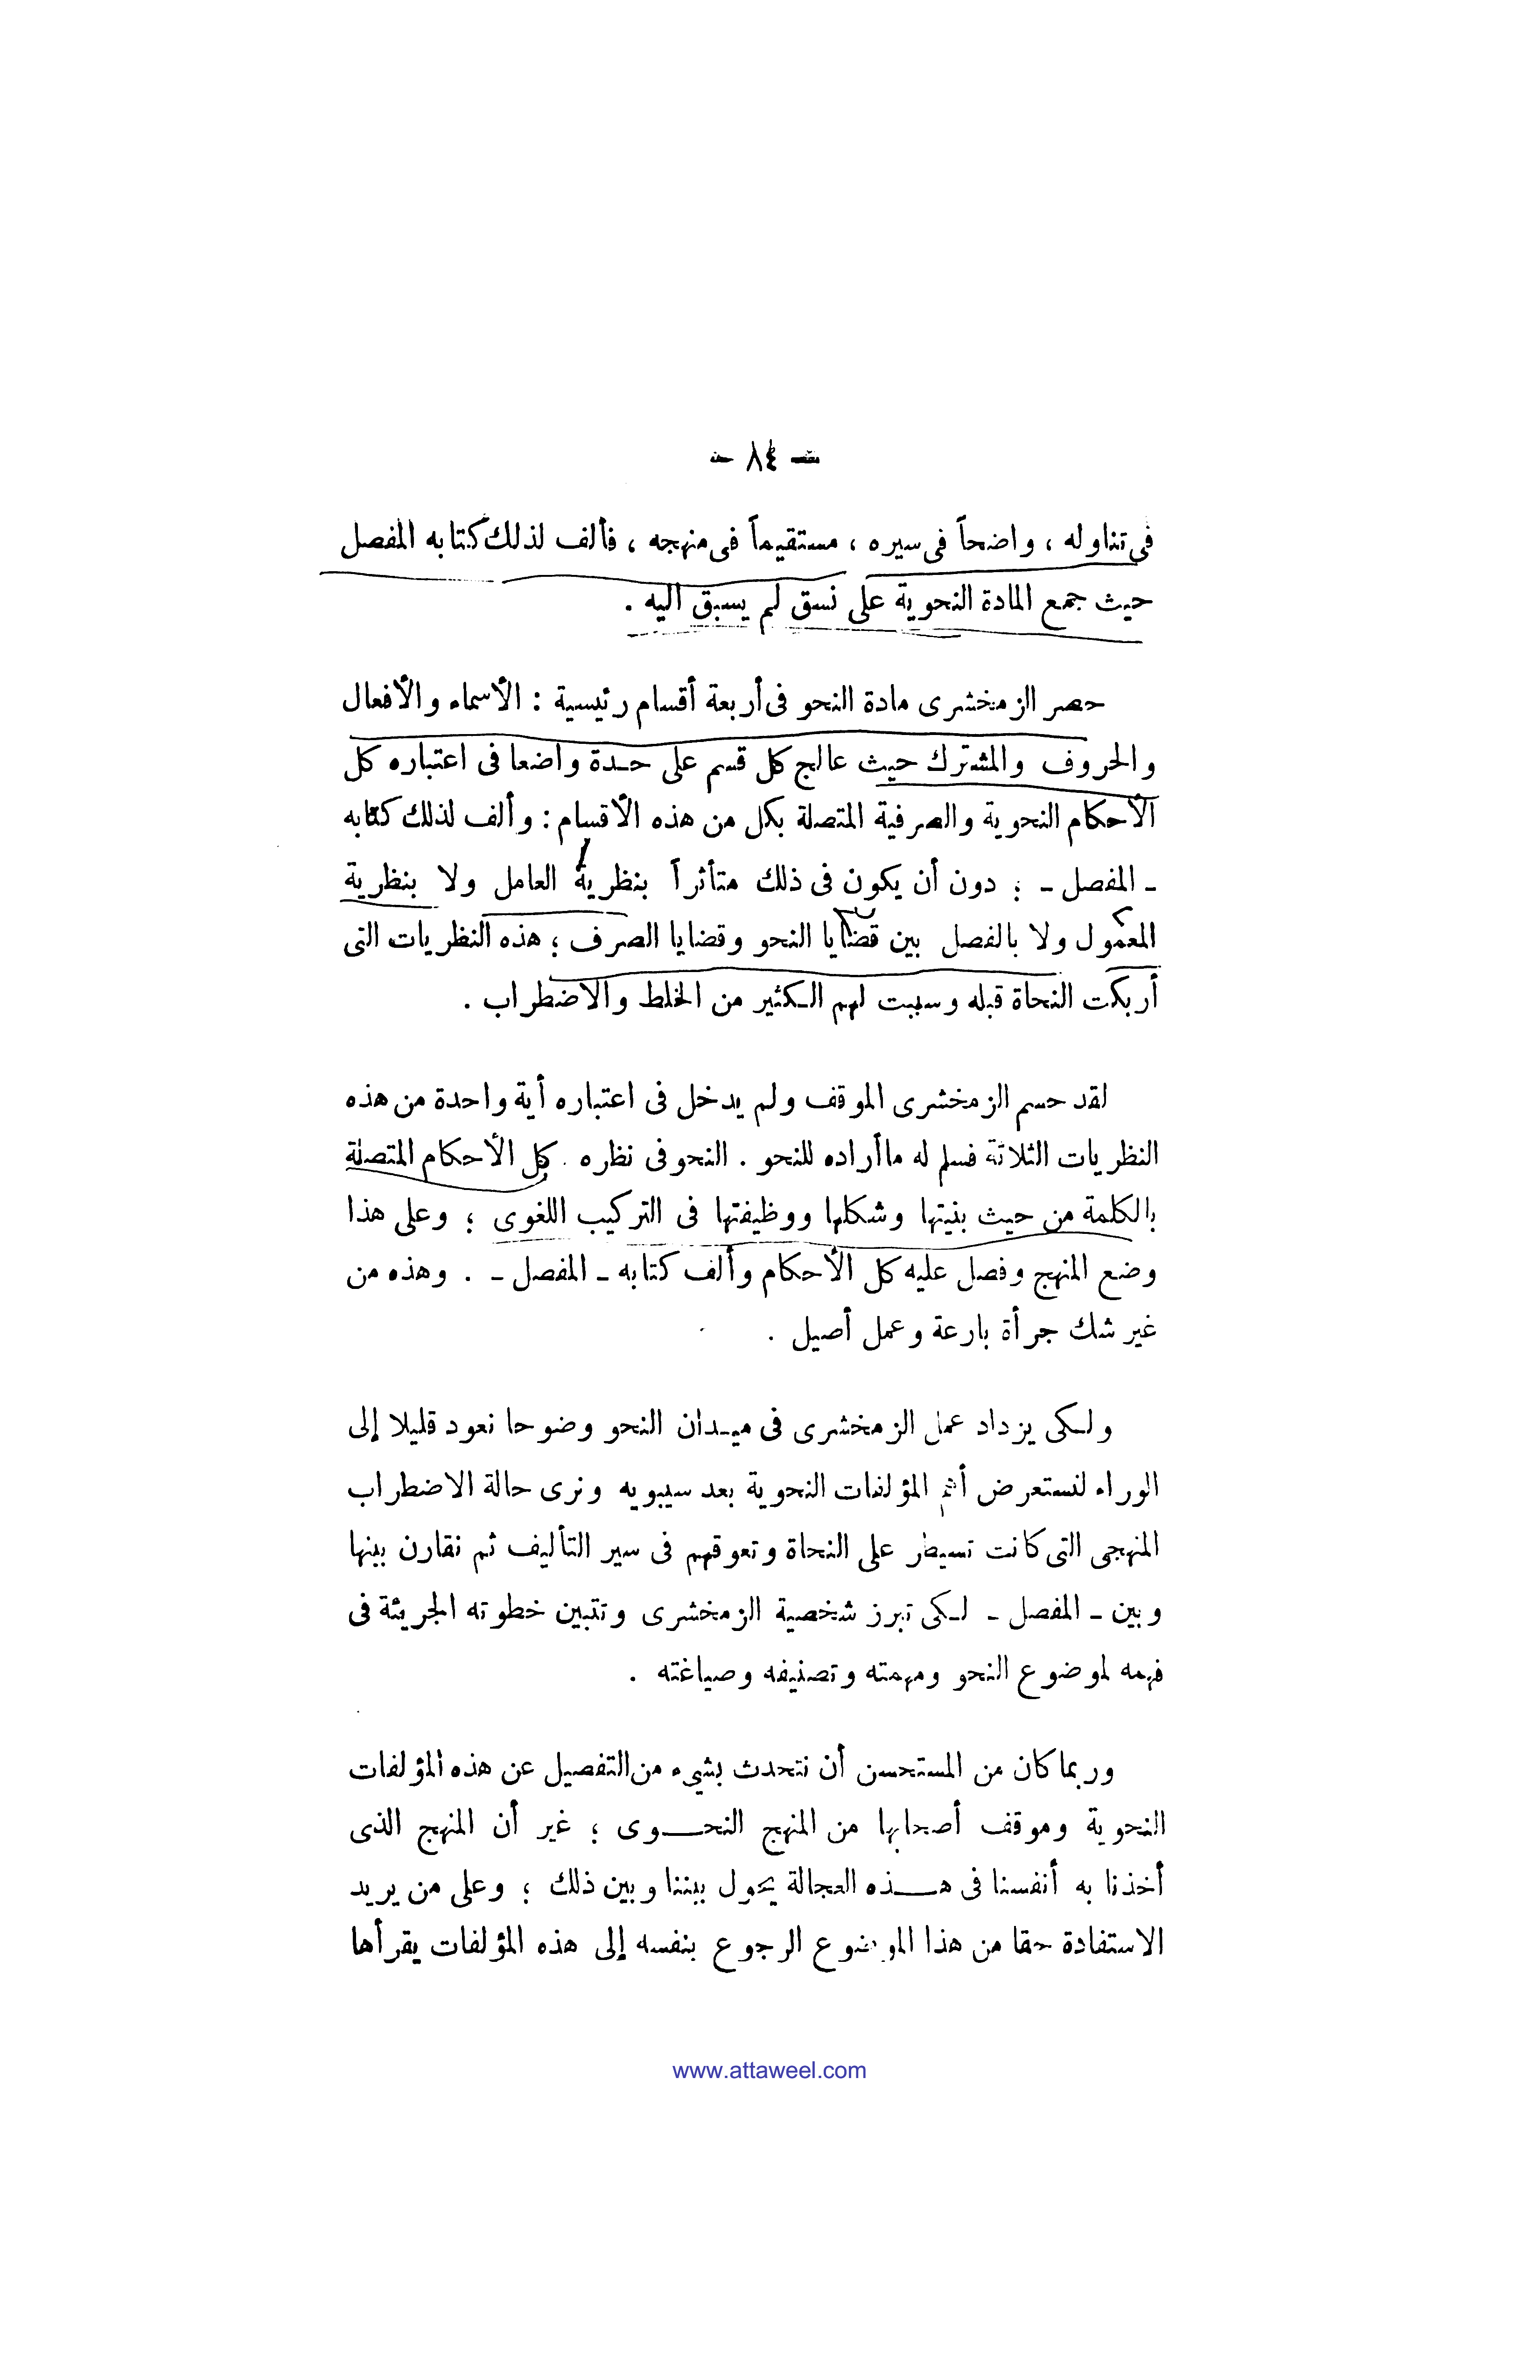 — ٨٤ —
فى تناوله ، واضحاً فى سيره ، مستقيماً فى منهجه ، فألف لذلك كتابه المفصل
حيث جمع المادة النحوية على نسق لم يسبق اليه .
حصر الزمخشرى مادة النحو فى أربعة أقسام رئيسية : الأسماء والأفعال
والحروف والمشترك حيث عالج كل قسم على حدة واضعا فى اعتباره كل
الأحكام النحوية والصرفية المتصلة بكل من هذه الأقسام : وألف لذلك كتابه
ـ المفصل ـ ؛ دون أن يكون فى ذلك متأثراً بنظرية العامل ولا بنظرية
المعمول ولا بالفصل بين قضايا النحو وقضايا الصرف ؛ هذه النظريات التى
أربكت النحاة قبله وسببت لهم الكثير من الخلط والاضطراب .
لقد حسم الزمخشرى الموقف ولم يدخل فى اعتباره أية واحدة من هذه
النظريات الثلاثة فسلم له ما أراده للنحو . النحو فى نظره كل الأحكام المتصلة
بالكلمة من حيث بنيتها وشكلها ووظيفتها فى التركيب اللغوى ؛ وعلى هذا
وضع المنهج وفصل عليه كل الأحكام وألف كتابه ـ المفصل ـ . وهذه من
غير شك جرأة بارعة وعمل أصيل .
ولكى يزداد عمل الزمخشرى فى ميدان النحو وضوحا نعود قليلا إلى
الوراء لنستعرض أهم المؤلفات النحوية بعد سيبويه ونرى حالة الاضطراب
المنهجى التى كانت تسيطر على النحاة وتعوقهم فى سير التأليف ثم نقارن بينها
وبين ـ المفصل ـ لكى تبرز شخصية الزمخشرى وتتبين خطوته الجريئة فى
فهمه لموضوع النحو ومهمته وتصنيفه وصياغته .
وربما كان من المستحسن أن نتحدث بشىء من التفصيل عن هذه المؤلفات
النحوية وموقف أصحابها من المنهج النحوى ؛ غير أن المنهج الذى
أخذنا به أنفسنا فى هذه العجالة يحول بيننا وبين ذلك ؛ وعلى من يريد
الاستفادة حقا من هذا الموضوع الرجوع بنفسه إلى هذه المؤلفات يقرأها
www.attaweel.com